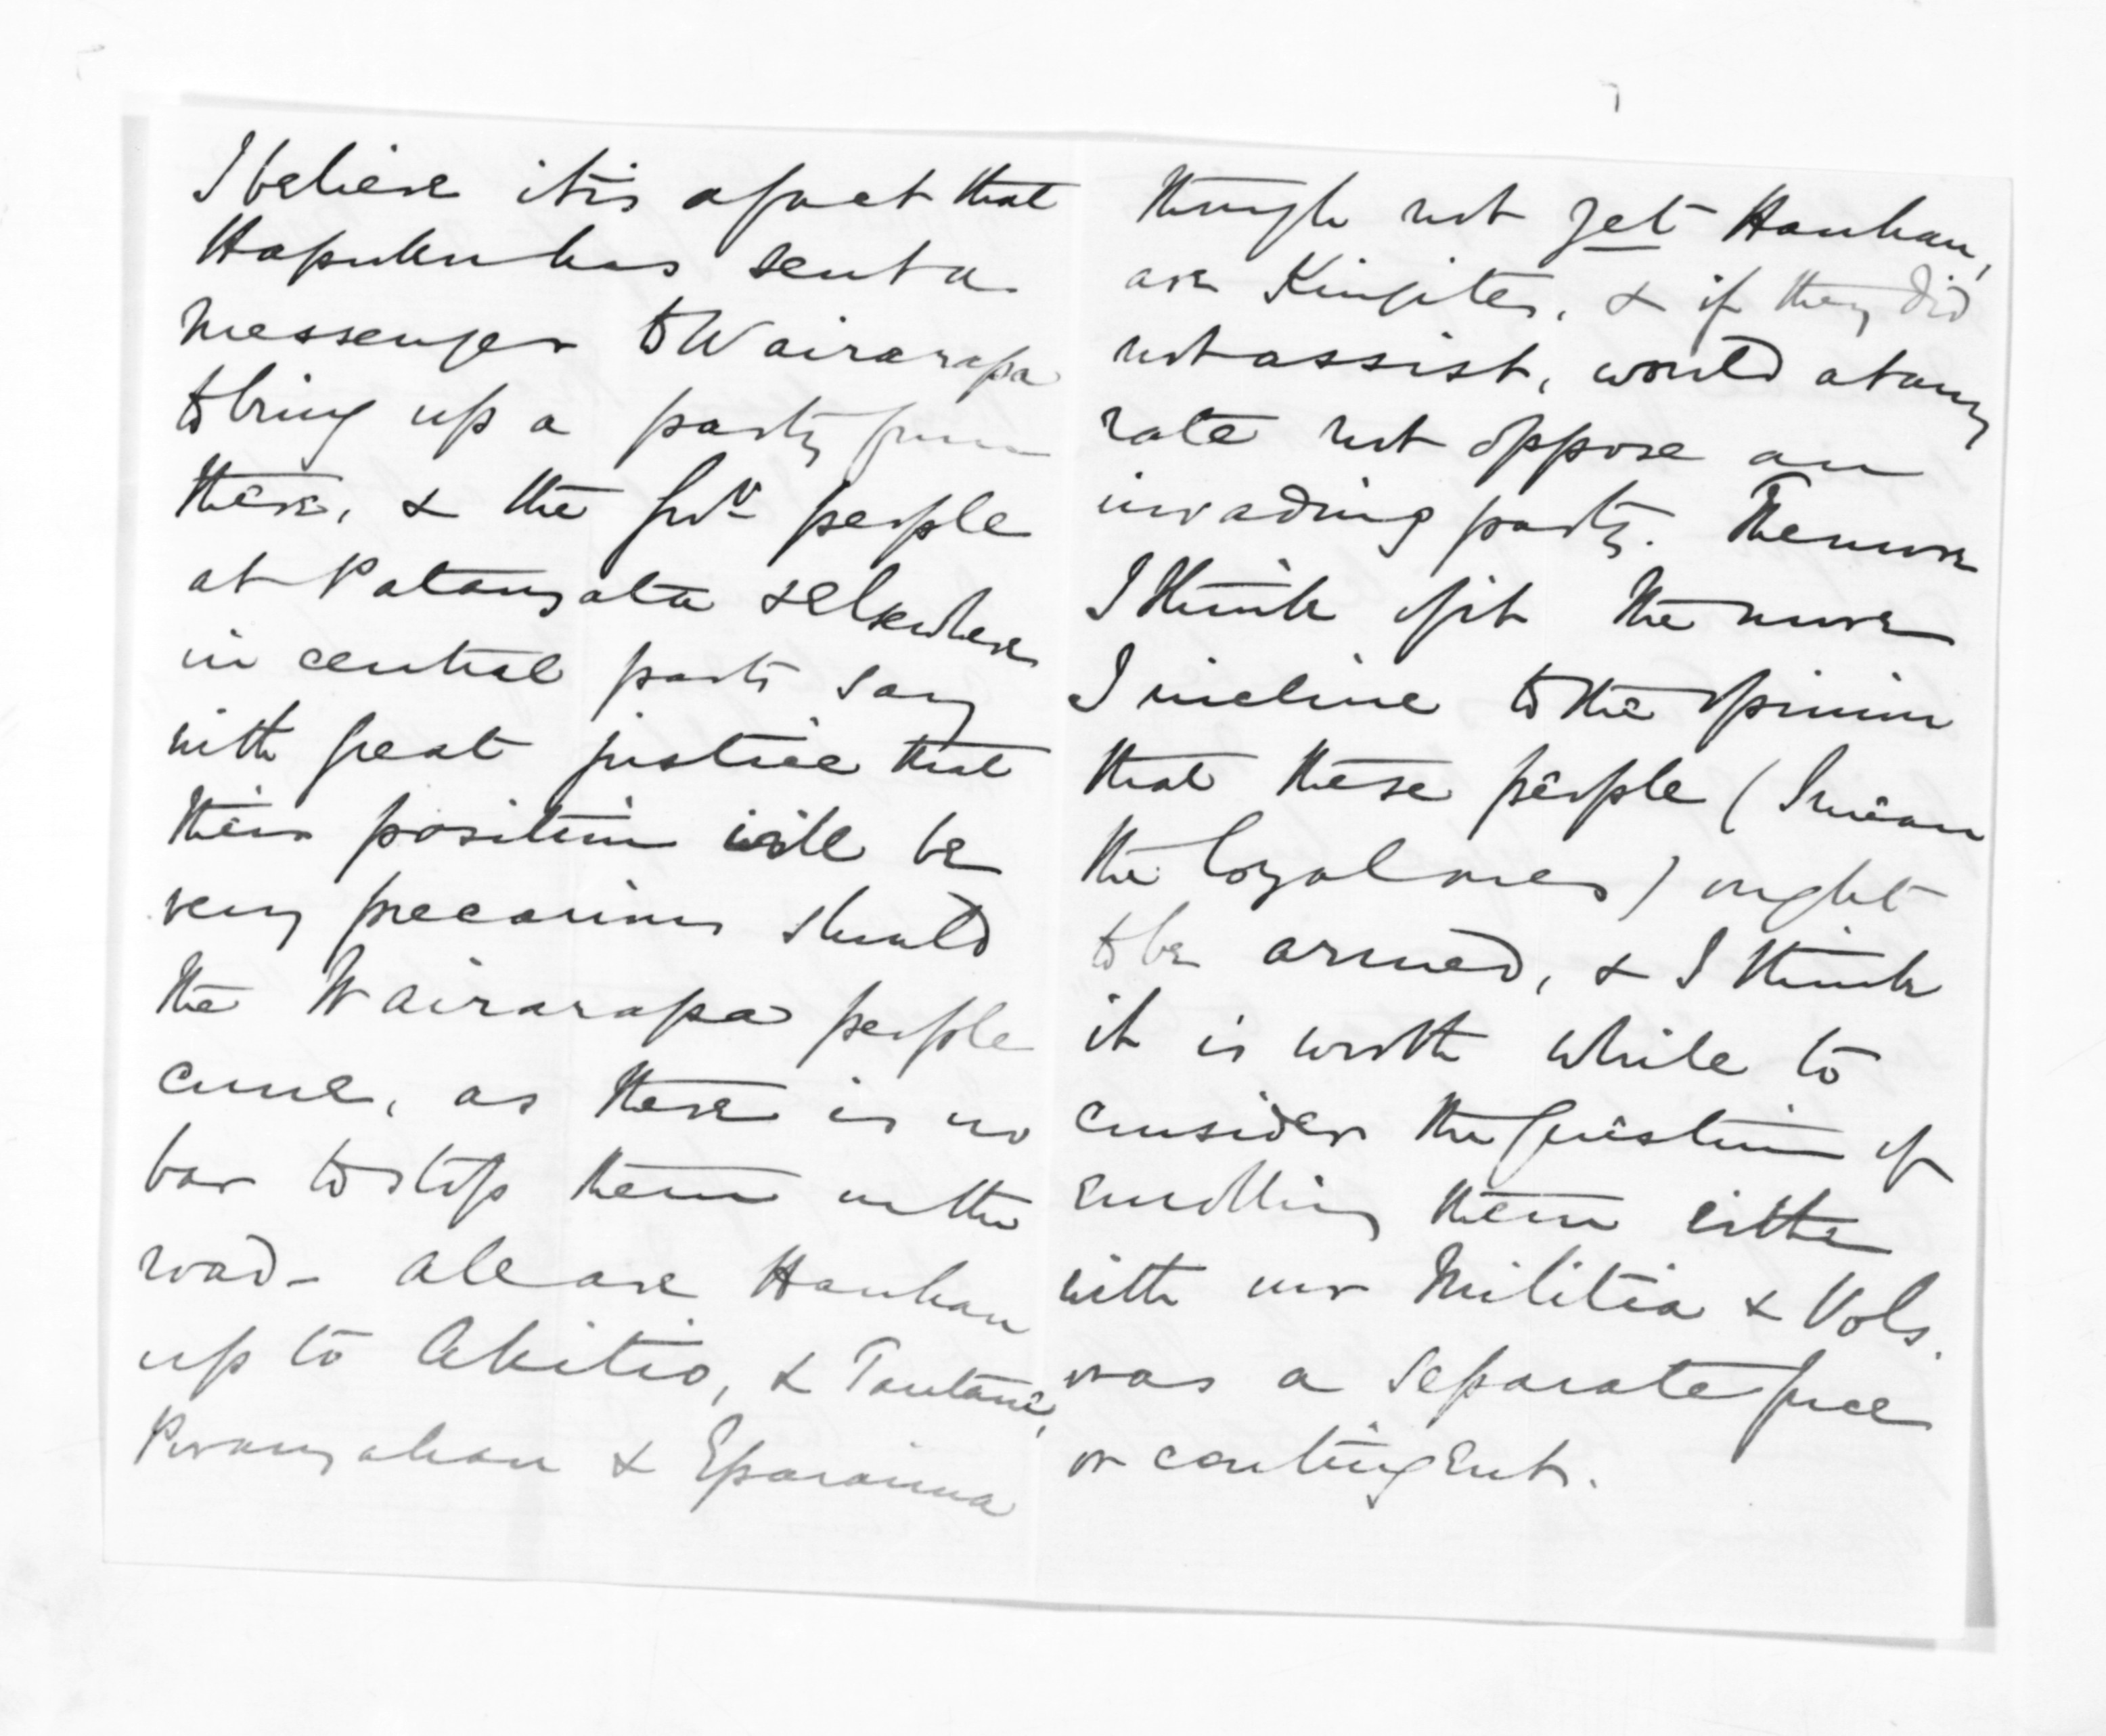 I believe it is a fact that
Hapuku has sent a
messenger to Wairarapa
to bring up a party from
there, & the Govt people
at Patangata & elsewhere
in central parts say
with great justice that
their position will be
very precarious should
the Wairarapa people
come, as there is no
bar to stop them on the
road - all are Hauhau
up to Akitio, & Tautane,
Porangahau & Eparaima
though not yet Hauhau,
are Kingites, & if they did
not assist, would at any
rate not oppose an
invading party. The more
I think of it the more
I incline to the opinion
that these people (I mean
the loyal ones) ought
to be armed, & I think
it is worth while to
consider the question of
enrolling them either
with our Militia & Vols.
or as a separate force
or contingent.